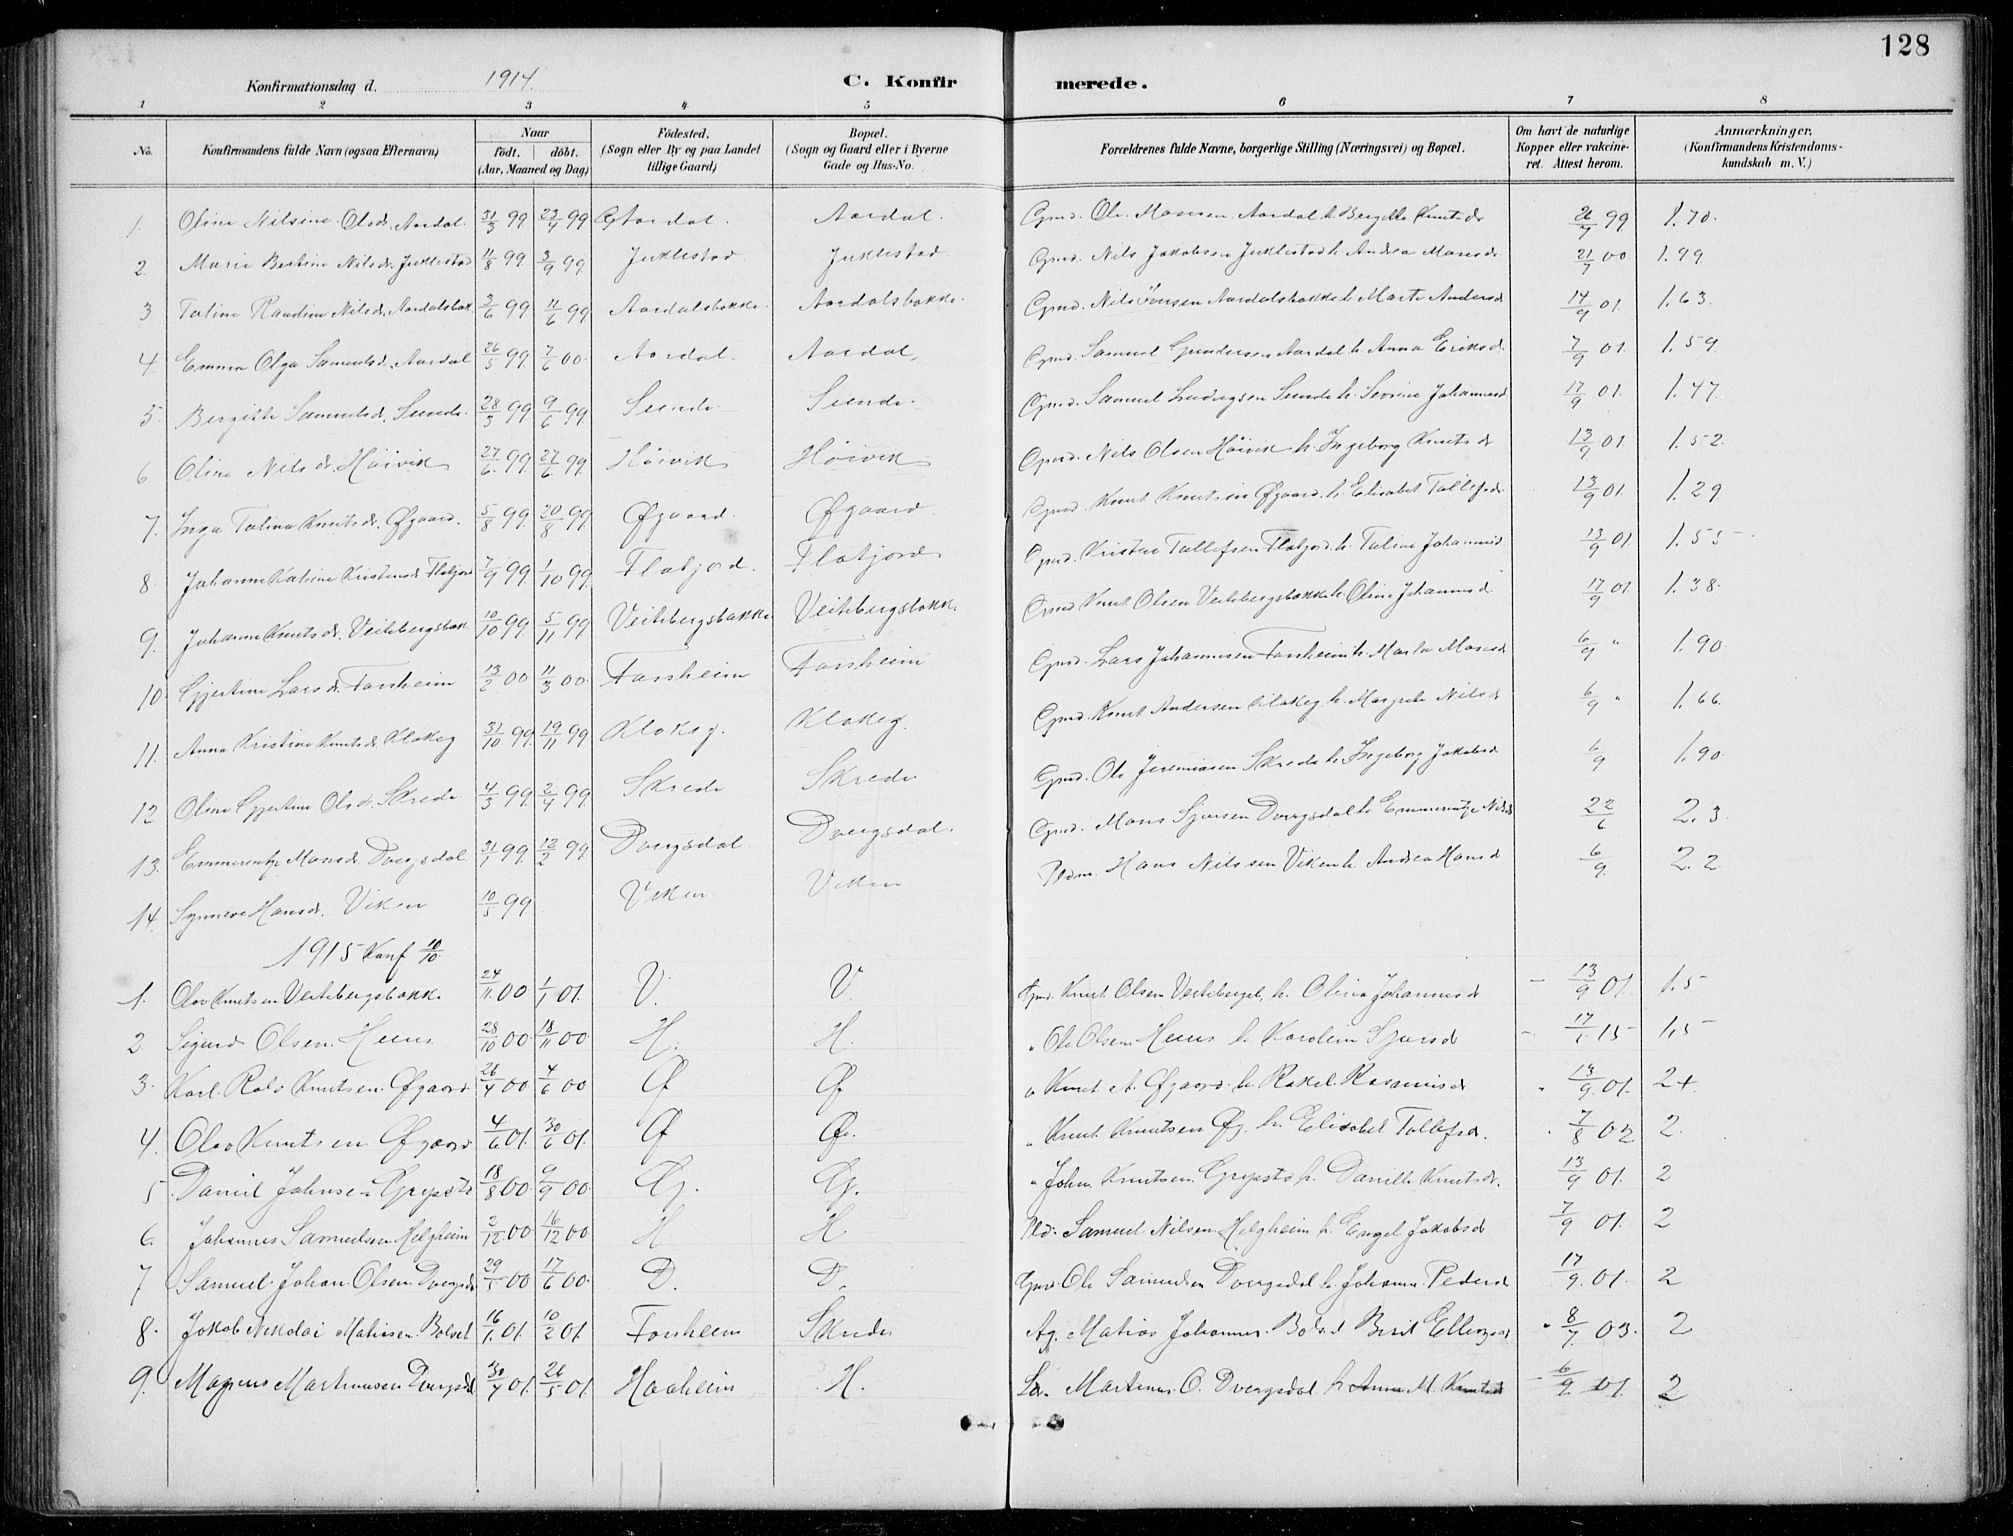 128
Konfirmationsdag d. 1914. C. Konfirmerede.
1 2 3 4 5 6 7 8
No. Konfirmandens fulde Navn (ogsaa Efternavn) Naar födt. döbt. (Aar, Maaned og Dag) Födested. (Sogn eller By og paa Landet tillige Gaard) Bopæl. (Sogn og Gaard eller i Byerne Gade og Hus-No. Forældrenes fulde Navne, borgerlige Stilling (Næringsvei) og Bopæl. Om havt de naturlige Kopper eller vakcineret. Attest herom. Anmærkninger. (Konfirmandens Kristendomskundskab m. V.)
1. Oline Nilsine Olsdr. Aardal 31/3 99 23/4 99 Aardal. Aardal. Gmd. Ole Monsen Aardal h. Bergitte Knutsdr 26/7 99 1.70.
2. Marie Bertine Nilsdr. Juklestad 11/8 99 3/9 99 Juklestad Juklestad Gmd. Nils Jakobsen Juklestad h. Andrea Monsdr 21/7 00 1.99
3 Taline Raudine Nilsdr. Aardalsbak. 3/6 99 11/6 99 Aardalsbakke. Aardalsbakke. Gmd. Nils Iversen Aardalsbakke h. Marte Andersdr 14/9 01. 1.63.
4. Emma Olga Samuelsdr. Aardal 26/5 99 7/6 00. Aardal. Aardal. Gmd. Samuel Gundersen Aardal h. Anna Eriksdr. 7/9 01. 1.59.
5. Bergitte Samuelsdr. Sunde. 28/3 99 9/6 99 Sunde Sunde. Gmd. Samuel Ludvigsen Sunde h. Severine Johannesd 17/9 01. 1.47.
6 Oline Nilsdr. Höivik 27/6. 99. 27/6 99. Höivik Höivik Gmd. Nils Olsen Höivik h. Ingeborg Knutsdr 13/9 01 1.52.
7. Inga Talina Knutsdr. Øgaard. 5/8 99. 20/8 99 Øgaard. Øgaard. Gmd. Knut Knutsen Øgaard h. Elisabet Tollefsdr. 13/9 01. 1.29.
8. Johanne Katrine Kristensdr Flatjord 7/9 99. 1/10 99 Flatjord. Flatjord. Gmd. Kristen Tollefsen Flatjord h. Taline Johannesd. 13/9 01. 1.55
9. Johanne Knutsdr. Veitebergsbak. 10/10 99. 5/11 99 Veitebergsbakke Veitebergsbakk. Gmd Knut Olsen Veitebergsbakke h. Oline Johannesd 17/9 01 1.38.
10 Gjertine Larsdr. Forsheim 13/2 00 11/3 00. Forsheim Forsheim Gmd. Lars Johannesen Forsheim h. Marta Monsdr 6/9 " 1.90.
11. Anna Kristine Knutsdr. Klakeg 31/10. 99. 19/11 99 Klakeg. Klakeg. Gmd. Knut Andersen Klakeg h. Margrete Nilsdr 6/9 " 1.66.
12 Oline Gjertine Olsdr. Skrede 4/3 99. 2/4 99 Skrede Skrede Gmd. Ole Jeremiasen Skrede h. Ingeborg Jakobsd 6/9 1.90.
13. Emmerentze Monsdr. Dvergsdal 31/1 99. 12/2 99 Dvergsdal Dvergsdal. Gmd. Mons Sjursen Dvergsdal h. Emmerentze Nilsd 22/6 2.3
14. Synneve Hansdr. Viken 10/5 99 Viken Viken Pldm. Hans Nilssen Viken h. Andrea Hansd 6/9. 2.2.
1915 Konf 10/10.
1. Olav Knutsen Veitebergsbakk. 24/11. 00 1/1 01. V. V. Gmd. Knut Olsen Veitebergsb. h. Olina Johannesd - 13/9 01. 1.5
2. Sigurd Olsen Huus 28/10 00. 18/11 00 H. H. " Ole Olsen Huus h. Kardine Sjursdr - 17/6. 15 1.5
3. Karl Rolv Knutsen Øgaard. 28/4 00 4/6 00 Ø Ø. " Knut A. Øgaard h. Rakel Rasmusdr " 13/9. 01. 2+
4. Olav Knutsen Øgaard 4/6 01. 30/6 01. Ø Ø. " Knut Knutsen Øg. h. Elisabet Tollefsd. " 7/8 02 2.
5 Daniel Johnsen Grepstd 18/8 00. 9/9 00. G. G. " John Knutsen Grepstd h. Danille Knutsdr. 13/9 01. 2
6. Johannes Samuelsen Helgheim 2/12 00 16/12 00 H H Pld. Samuel Nilsen Helgheim h. Engel Jakobsd 7/9 01. 2
7 Samuel Johan Olsen Dvergsd 29/5 00 17/6 00. D. D. Gmd. Ole Samuelsen Dvergsdal h. Johanne Pedersd 17/9. 01. 2
8. Jakob Nikolai Matiasen Bolset 16/1. 01. 10/2 01. Forsheim Skrede Ag. Matias Johannes. Bolset Berit Ellingsd " 8/7. 03. 2
9. Magnus Martinusen Dvergsdal 30/4 01. 26/5 01. Haaheim H. La. Martinus O. Dvergsdal h Anne M. Knutsdr - 6/9. 01. 2